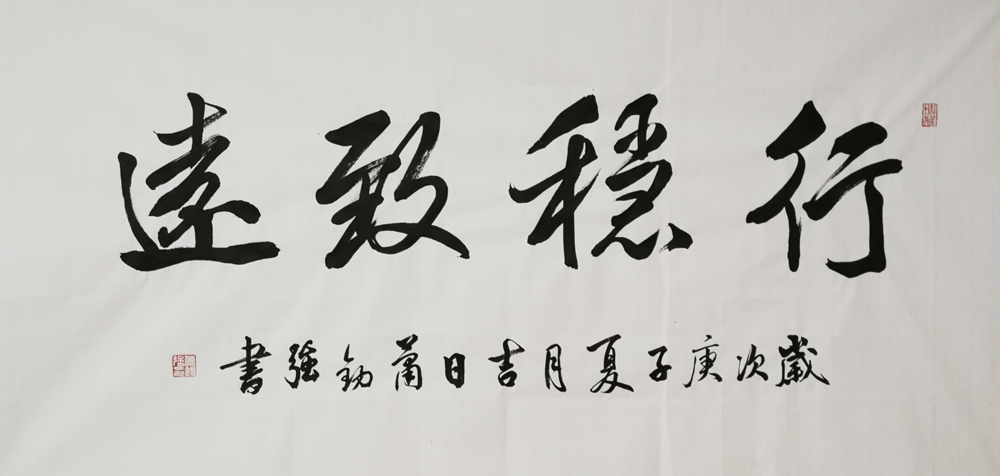 行穩致遠
歲次庚子夏月吉日蕭劍強書